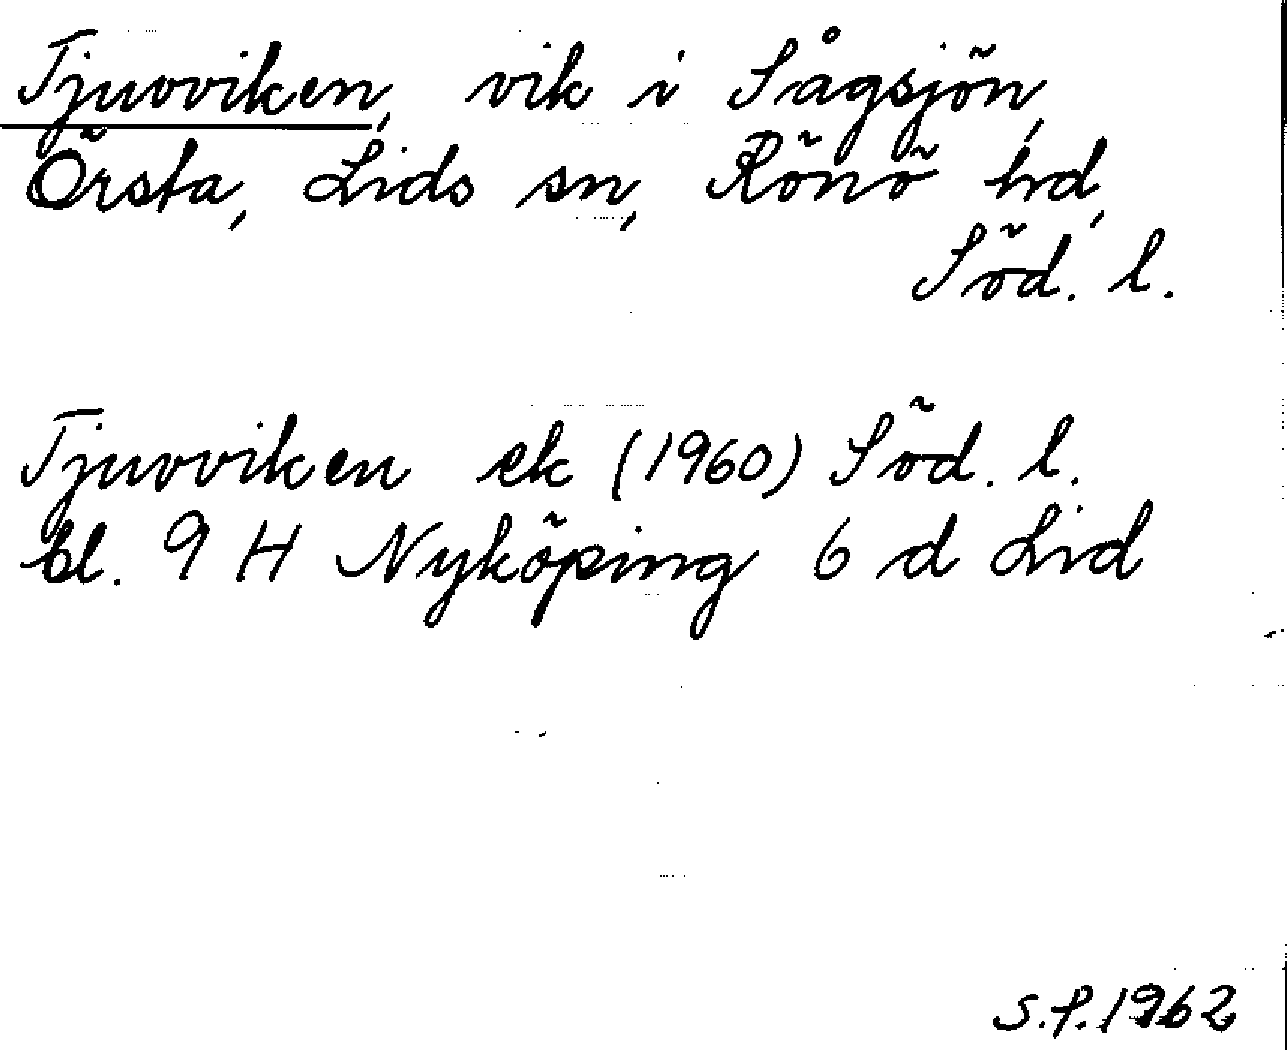 Tjuvviken, vik i Sågsjön,
Örsta, Lids sn, Rönö hd,
Söd. l.
Tjuvviken ek (1960) Söd. l.
bl. 9 H Nyköping 6 d Lid
S.f. 1962